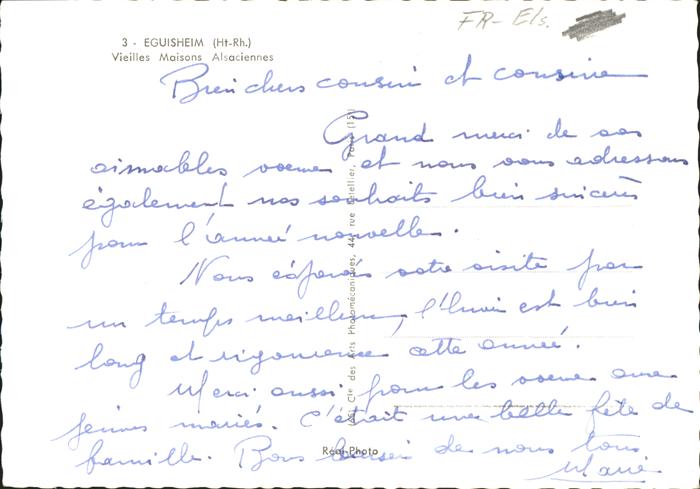 FR-Els.
3 - EGUISHEIM (Ht-Rh.)
Vieilles Maisons Alsaciennes
Bien chers cousin et cousine
Grand merci de vos
aimables voeux et nous vous adressons
également nos souhaits bien sincères
pour l'année nouvelle.
Nous espérons votre visite par
un temps meilleur, l'hiver est bien
long et rigoureux cette année.
Merci aussi pour les voeux aux
jeunes mariés. C'était une belle fête de
famille. Bons baisers de nous tous
Marie
Cie des Arts Photomécaniques, 44, rue Letellier, Paris (15)
Réal-Photo